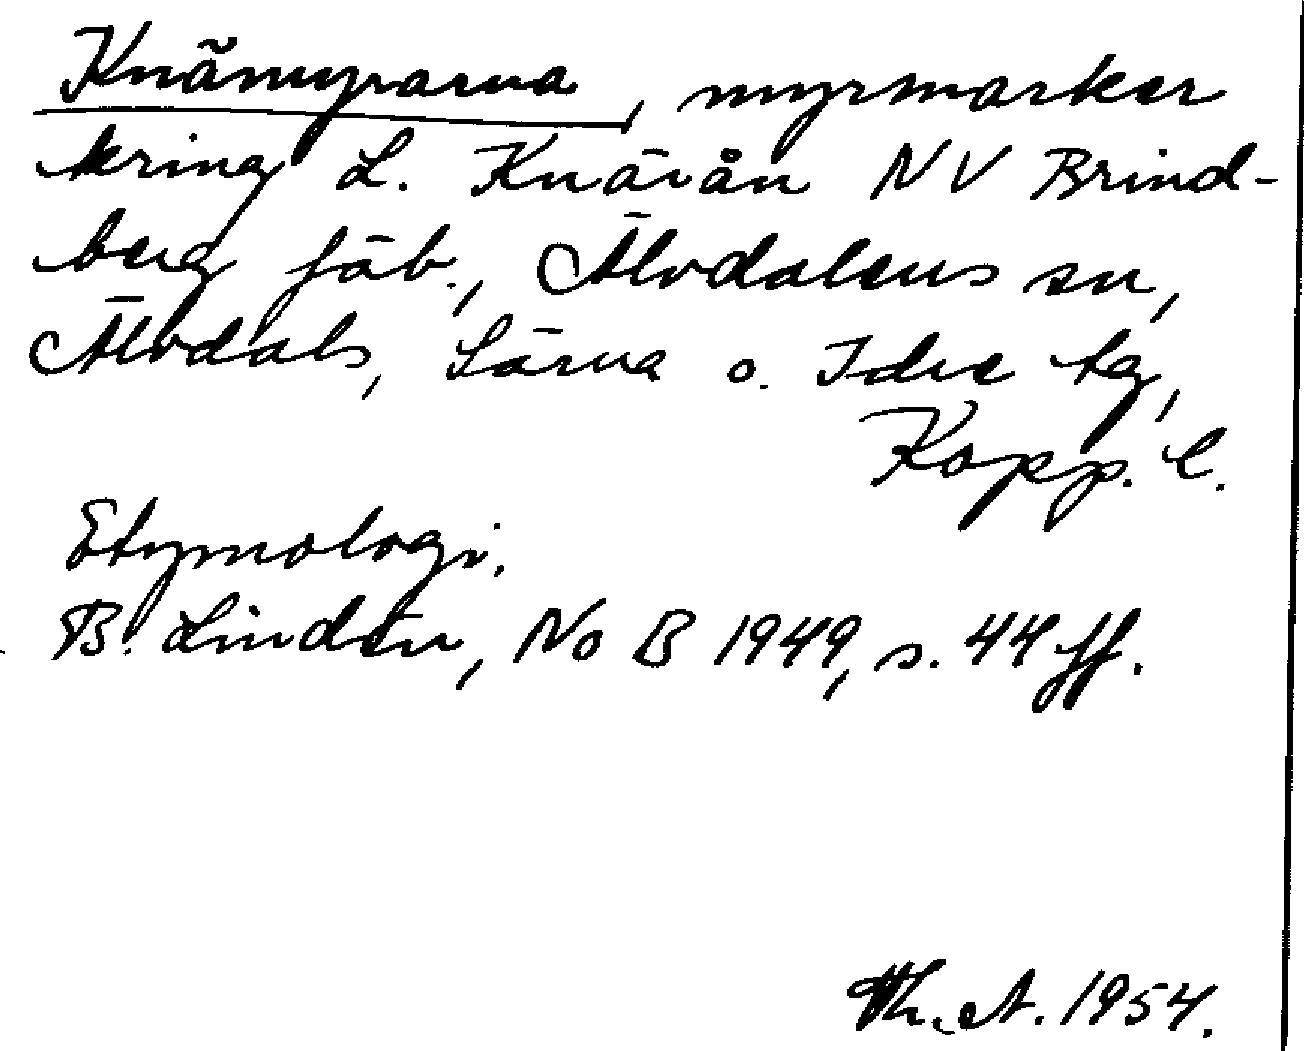 Knämyrarna, myrmarker
kring L. Knävån NV Brind-
berg fäb., Älvdalens sn,
Älvdals, Särna o. Idre tg,
Kopp. l.
Etymologi.
B. Lindén, NoB 1949, s. 44 ff.
Th. A. 1954.